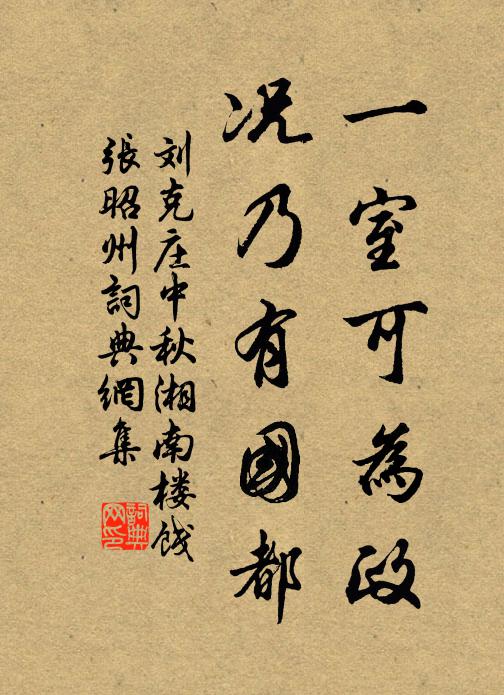 一室可為政
况乃有國都
刘克庄中秋湘南楼饯
張昭州詞典網集
詞典
网印